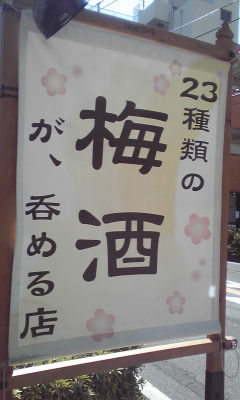 23種類の
梅酒
が、呑める店